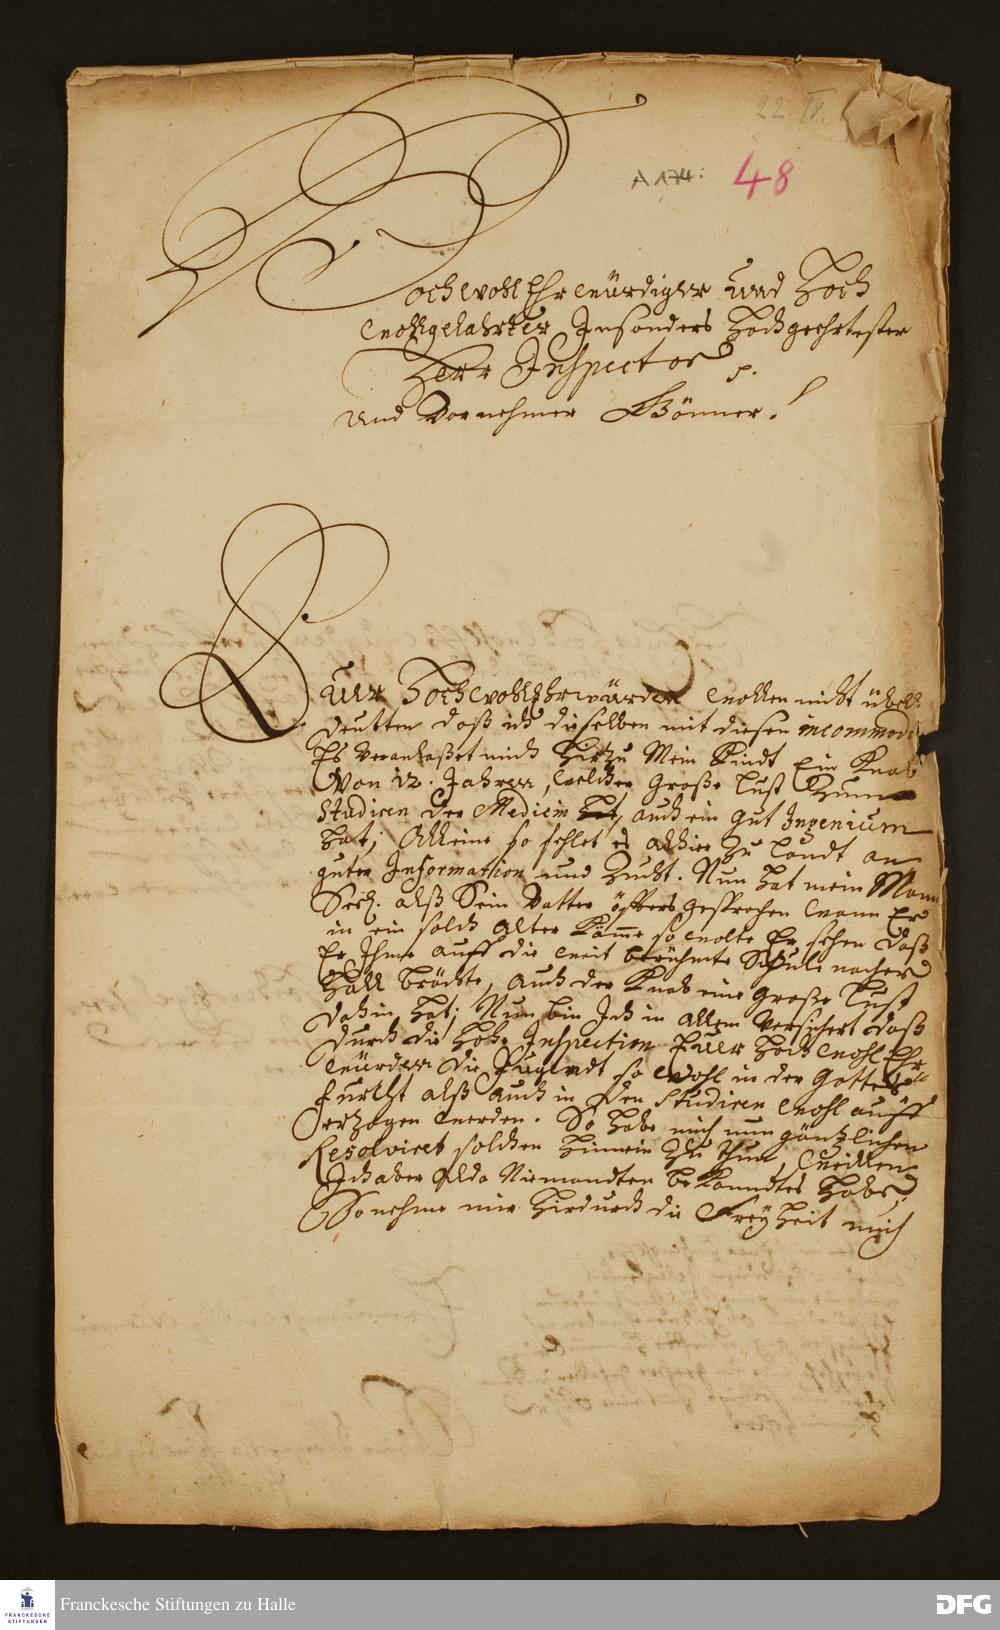 22. IV.
A 174: 48
Hochwohl Ehrwürdiger und Hoch
wohlgelahrter, Insonders Hochgeehrtester
Herr Inspector p.
und Vornehmer Gönner!
Euer Hochwohl Ehrwürden wollen nicht übell
deutten daß ich dieselben mit diesen incommodi
Es veranlaßet mich hirzu Mein Kindt Ein Knab
Von 12. Jahren, welcher große lust zum
studiren der Medicin hat, auch ein gut Ingenium
hat; Alleine so fehlet es alhier zu Landt an
guter Information und Zucht. Nun hat mein Mann
Seel. alß Sein Vatter öffters gesprochen wann Er
in ein solch alter käme so wolte Er sehen daß
Er Ihme auff die weit berühmte Schule nacher
Hall brächte, auch der Knab eine große lust
dahin hat; Nun bin Ich in allem versichert daß
durch die hohe Inspection Euer Hoch Wohl Ehr
würden die Jugendt so wohl in der Gottes
furcht alß auch in den Studiren wohl auff
erzogen werden. So habe mich nun gäntzlichen
Resolviret solchen hinein zu thun, weillen
Ich aber Alda Niemandten bekanndtes habe,
So nehme mir hirdurch die Freyheit mich
Franckesche Stiftungen zu Halle
FRANCKESCHE
STIFTUNGEN
DFG